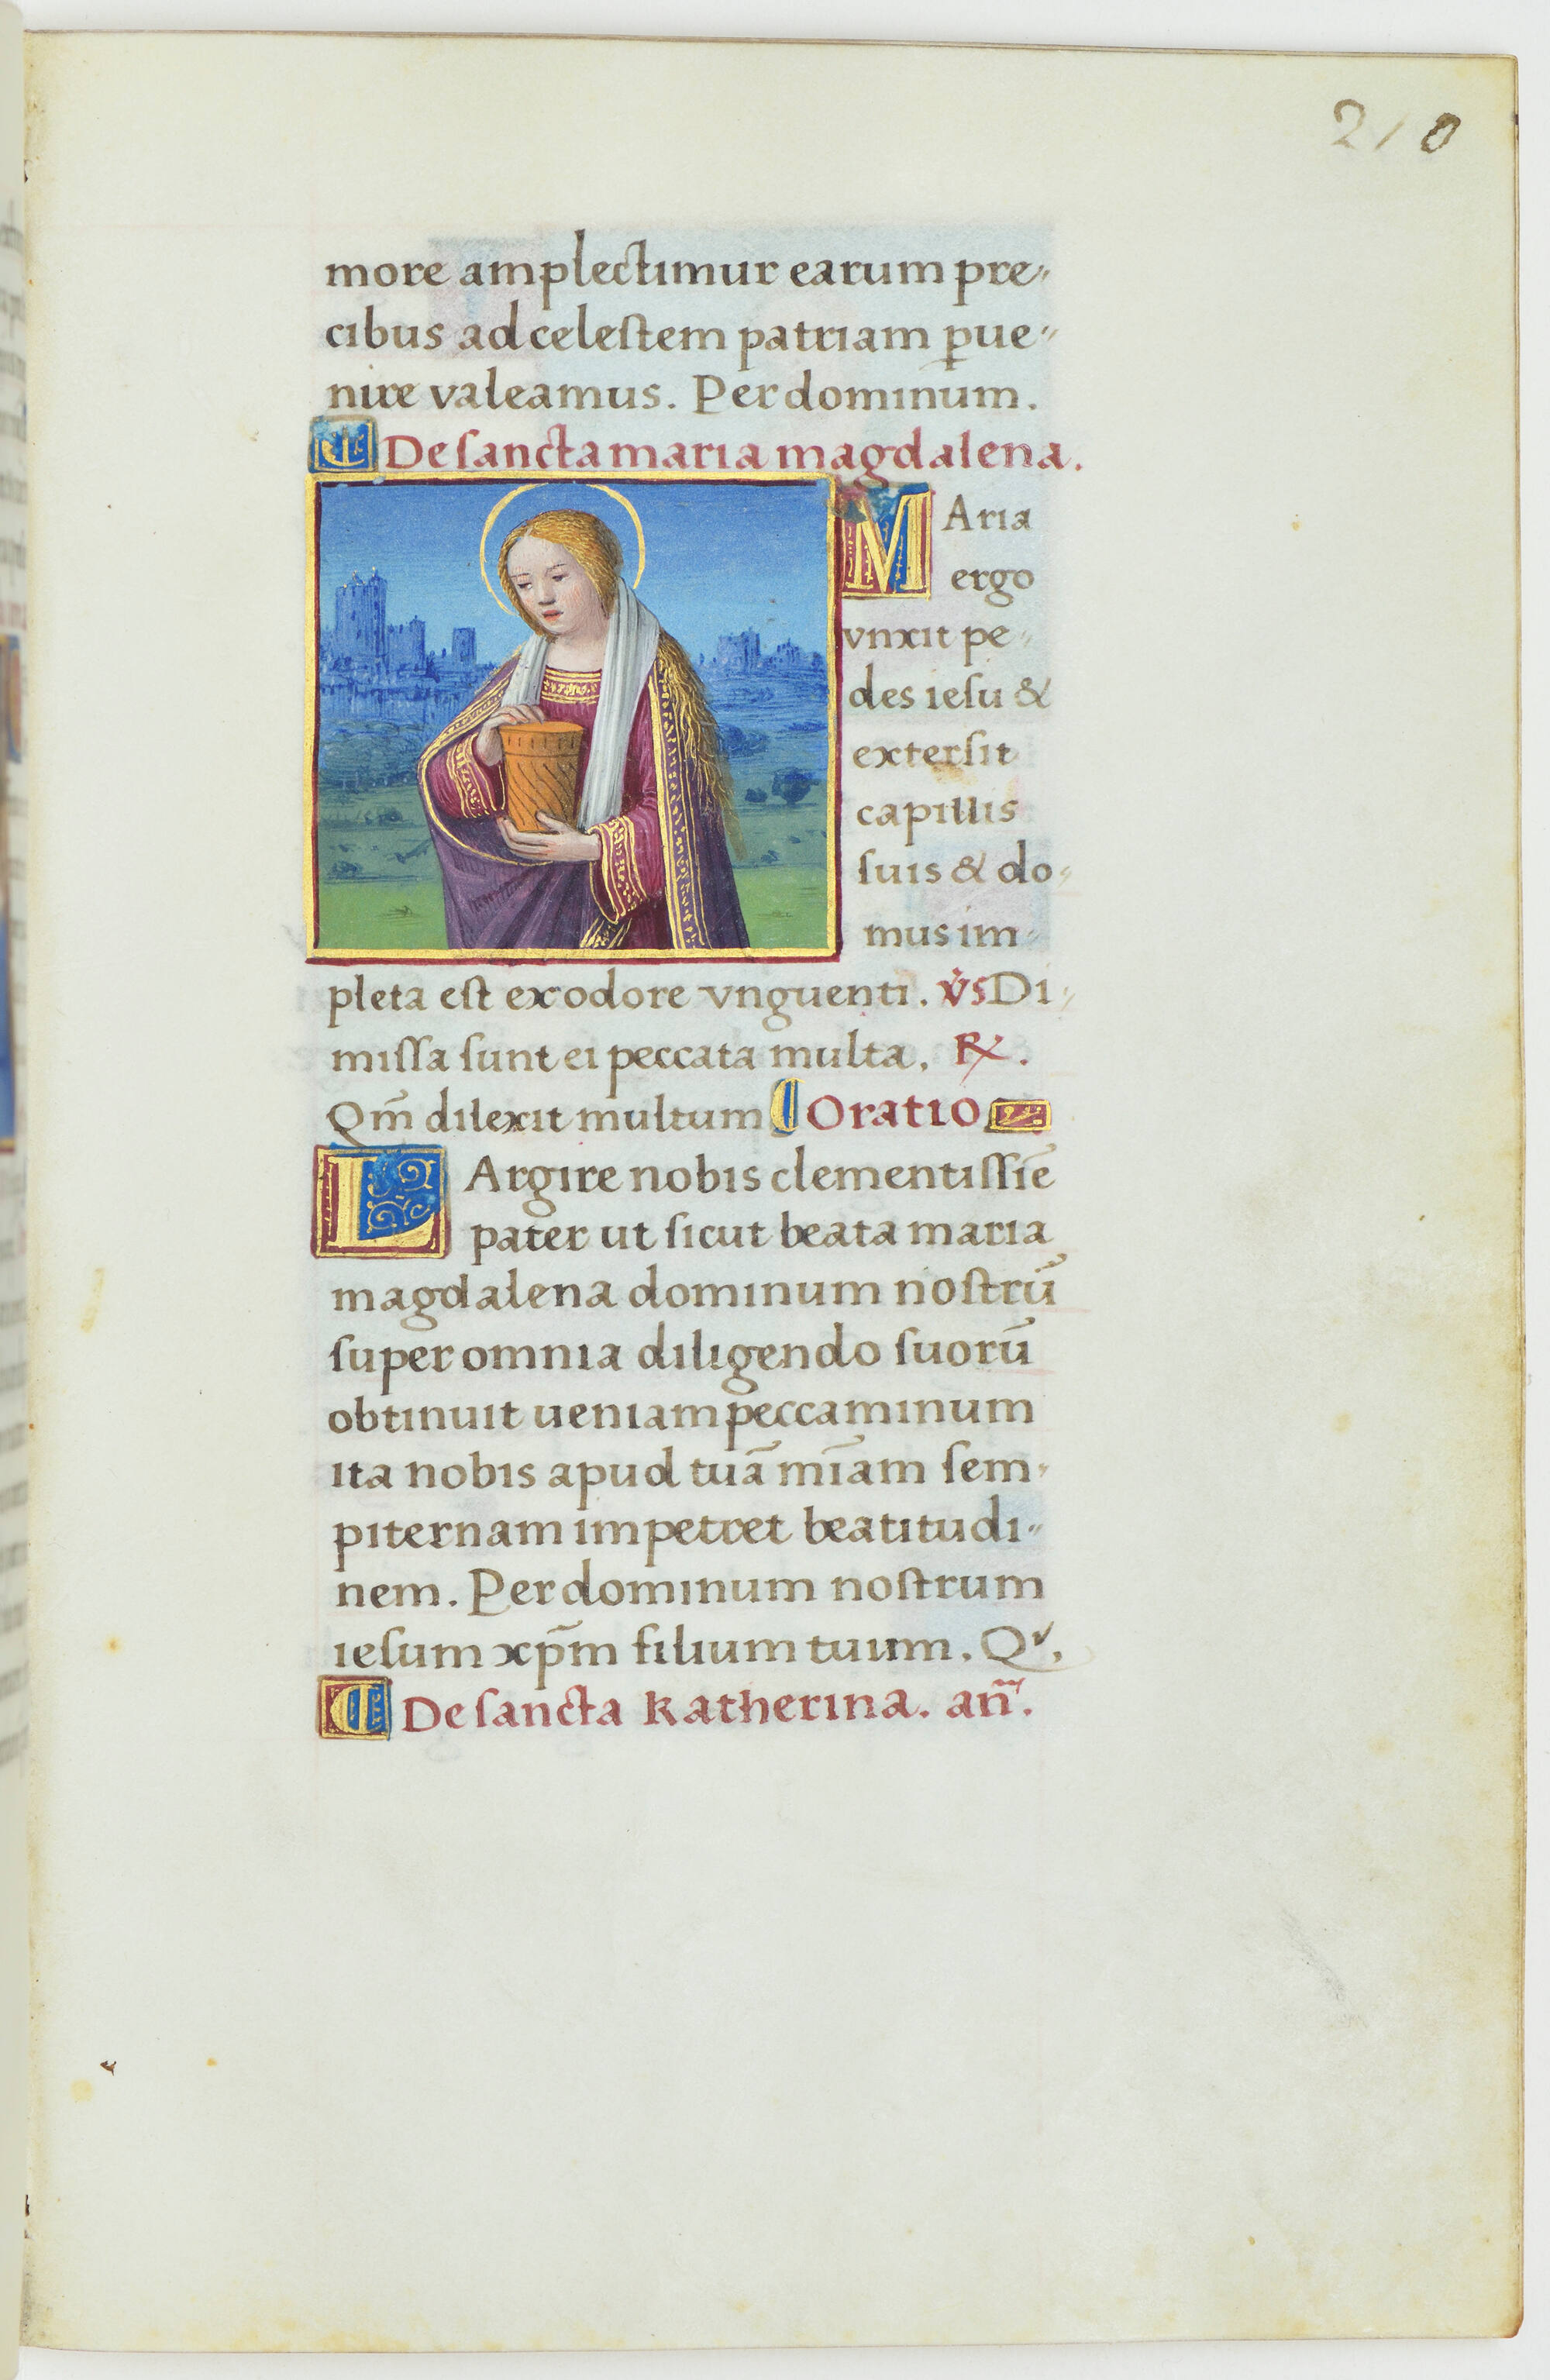 210
more amplectimur earum pre-
cibus ad celeſtem patriam ꝑue-
nire valeamus. Per dominum.
De ſancta maria magdalena.
MAria
ergo
vnxit pe-
des ieſu &
exterſit
capillis
ſuis & do-
mus im-
pleta eſt ex odore vnguenti. v̓s Di-
miſſa ſunt ei peccata multa. ℞.
Qm̄ dilexit multum Oratio
LArgire nobis clementiſſīe
pater ut ſicut beata maria
magdalena dominum noſtrū
ſuper omnia diligendo ſuorū
obtinuit ueniam peccaminum
ita nobis apud tuā mīam ſem-
piternam impetret beatitudi-
nem. Per dominum noſtrum
ieſum xp̄m filium tuum. Qͮ.
De ſancta Katherina. an̄.